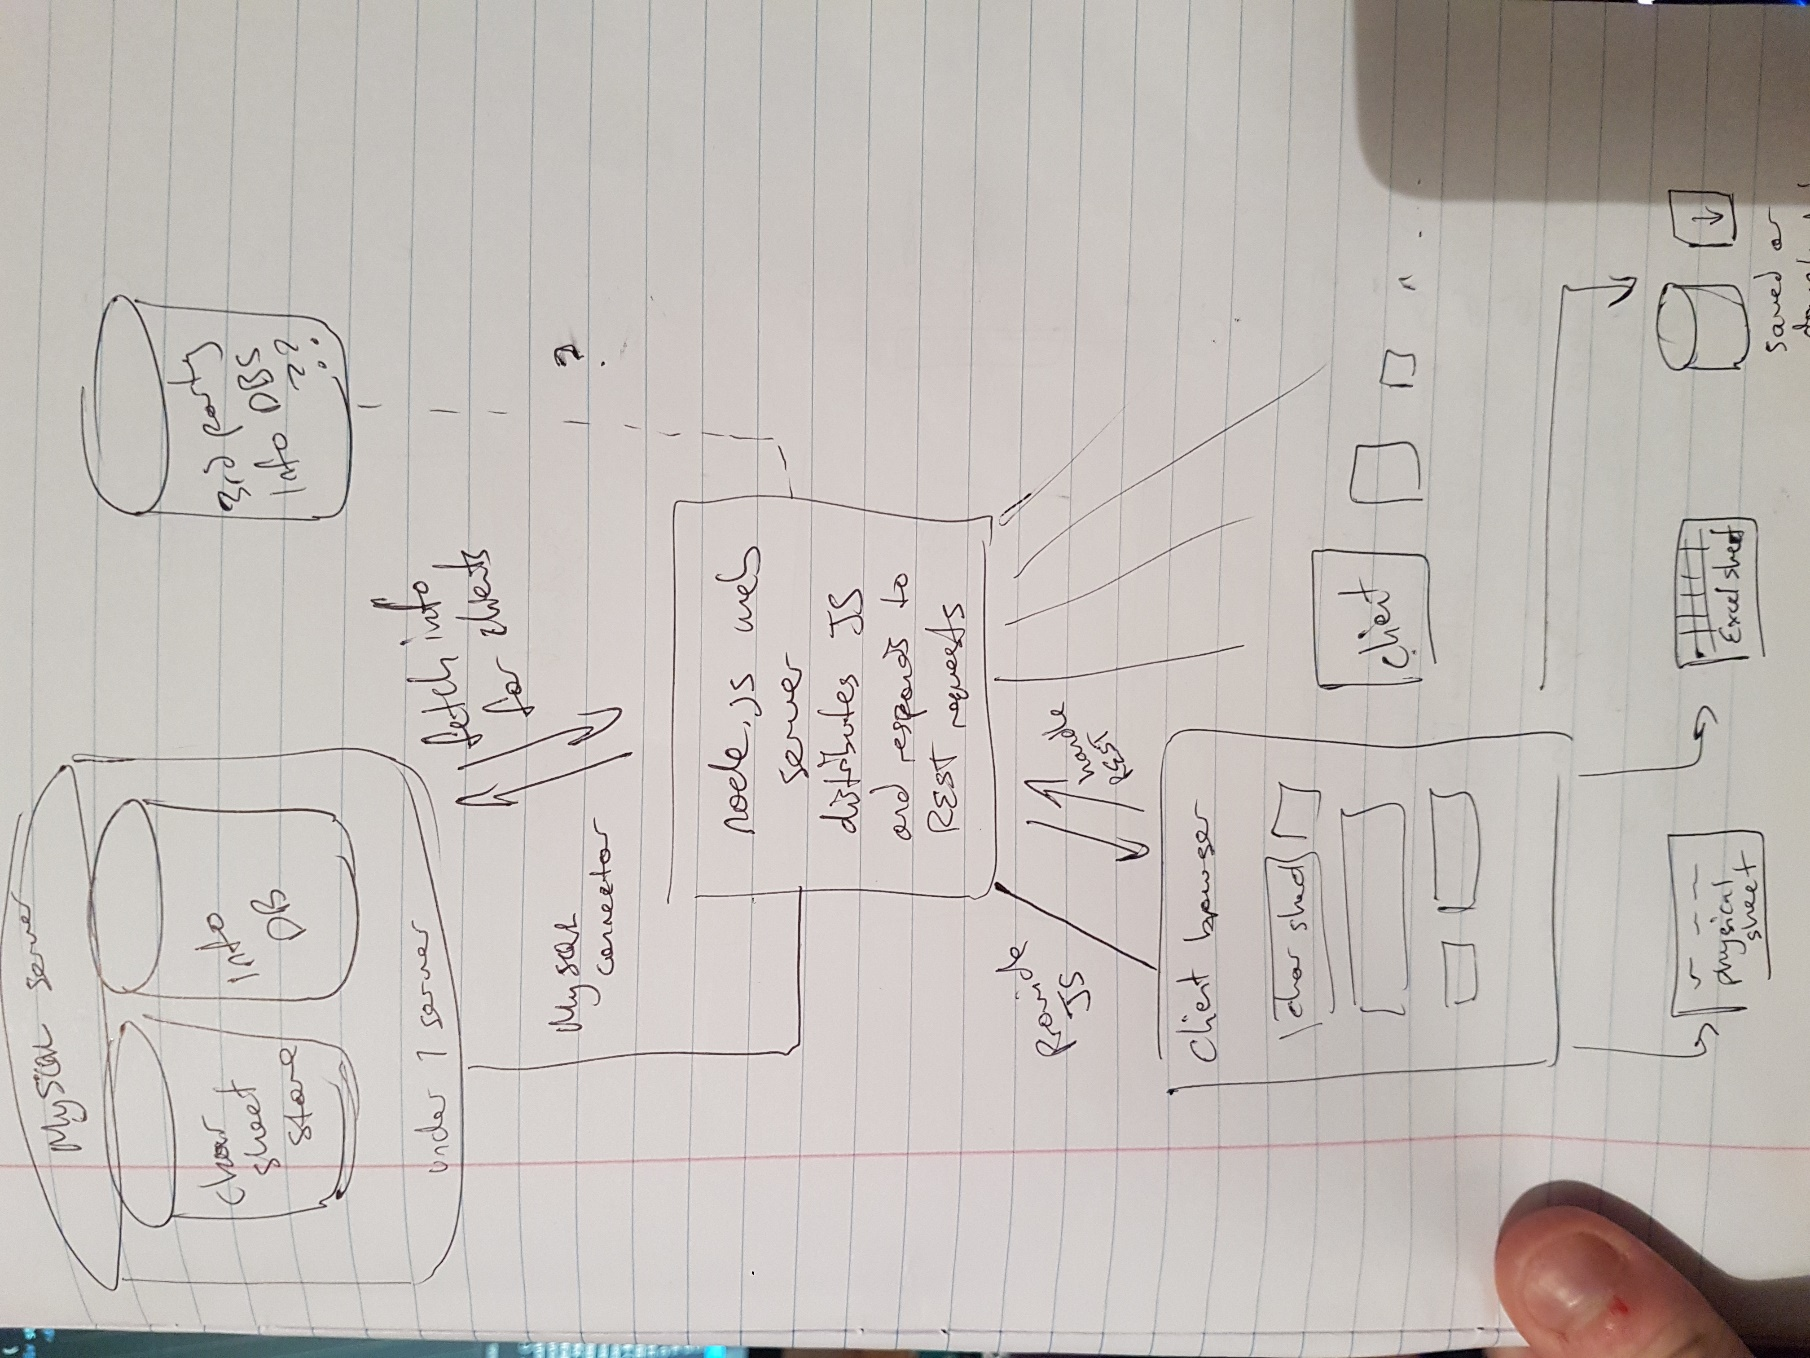 MySQL server
char
sheet
store
Info
DB
under 1 server
3rd party
Info DBS
??
fetch info
for clients
?
MySQL
connector
node.js web
server
distributes JS
and responds to
REST requests
Provide
JS
handle
REST
Client browser
char sheet
Client
physical
sheet
Excel sheet
Saved or